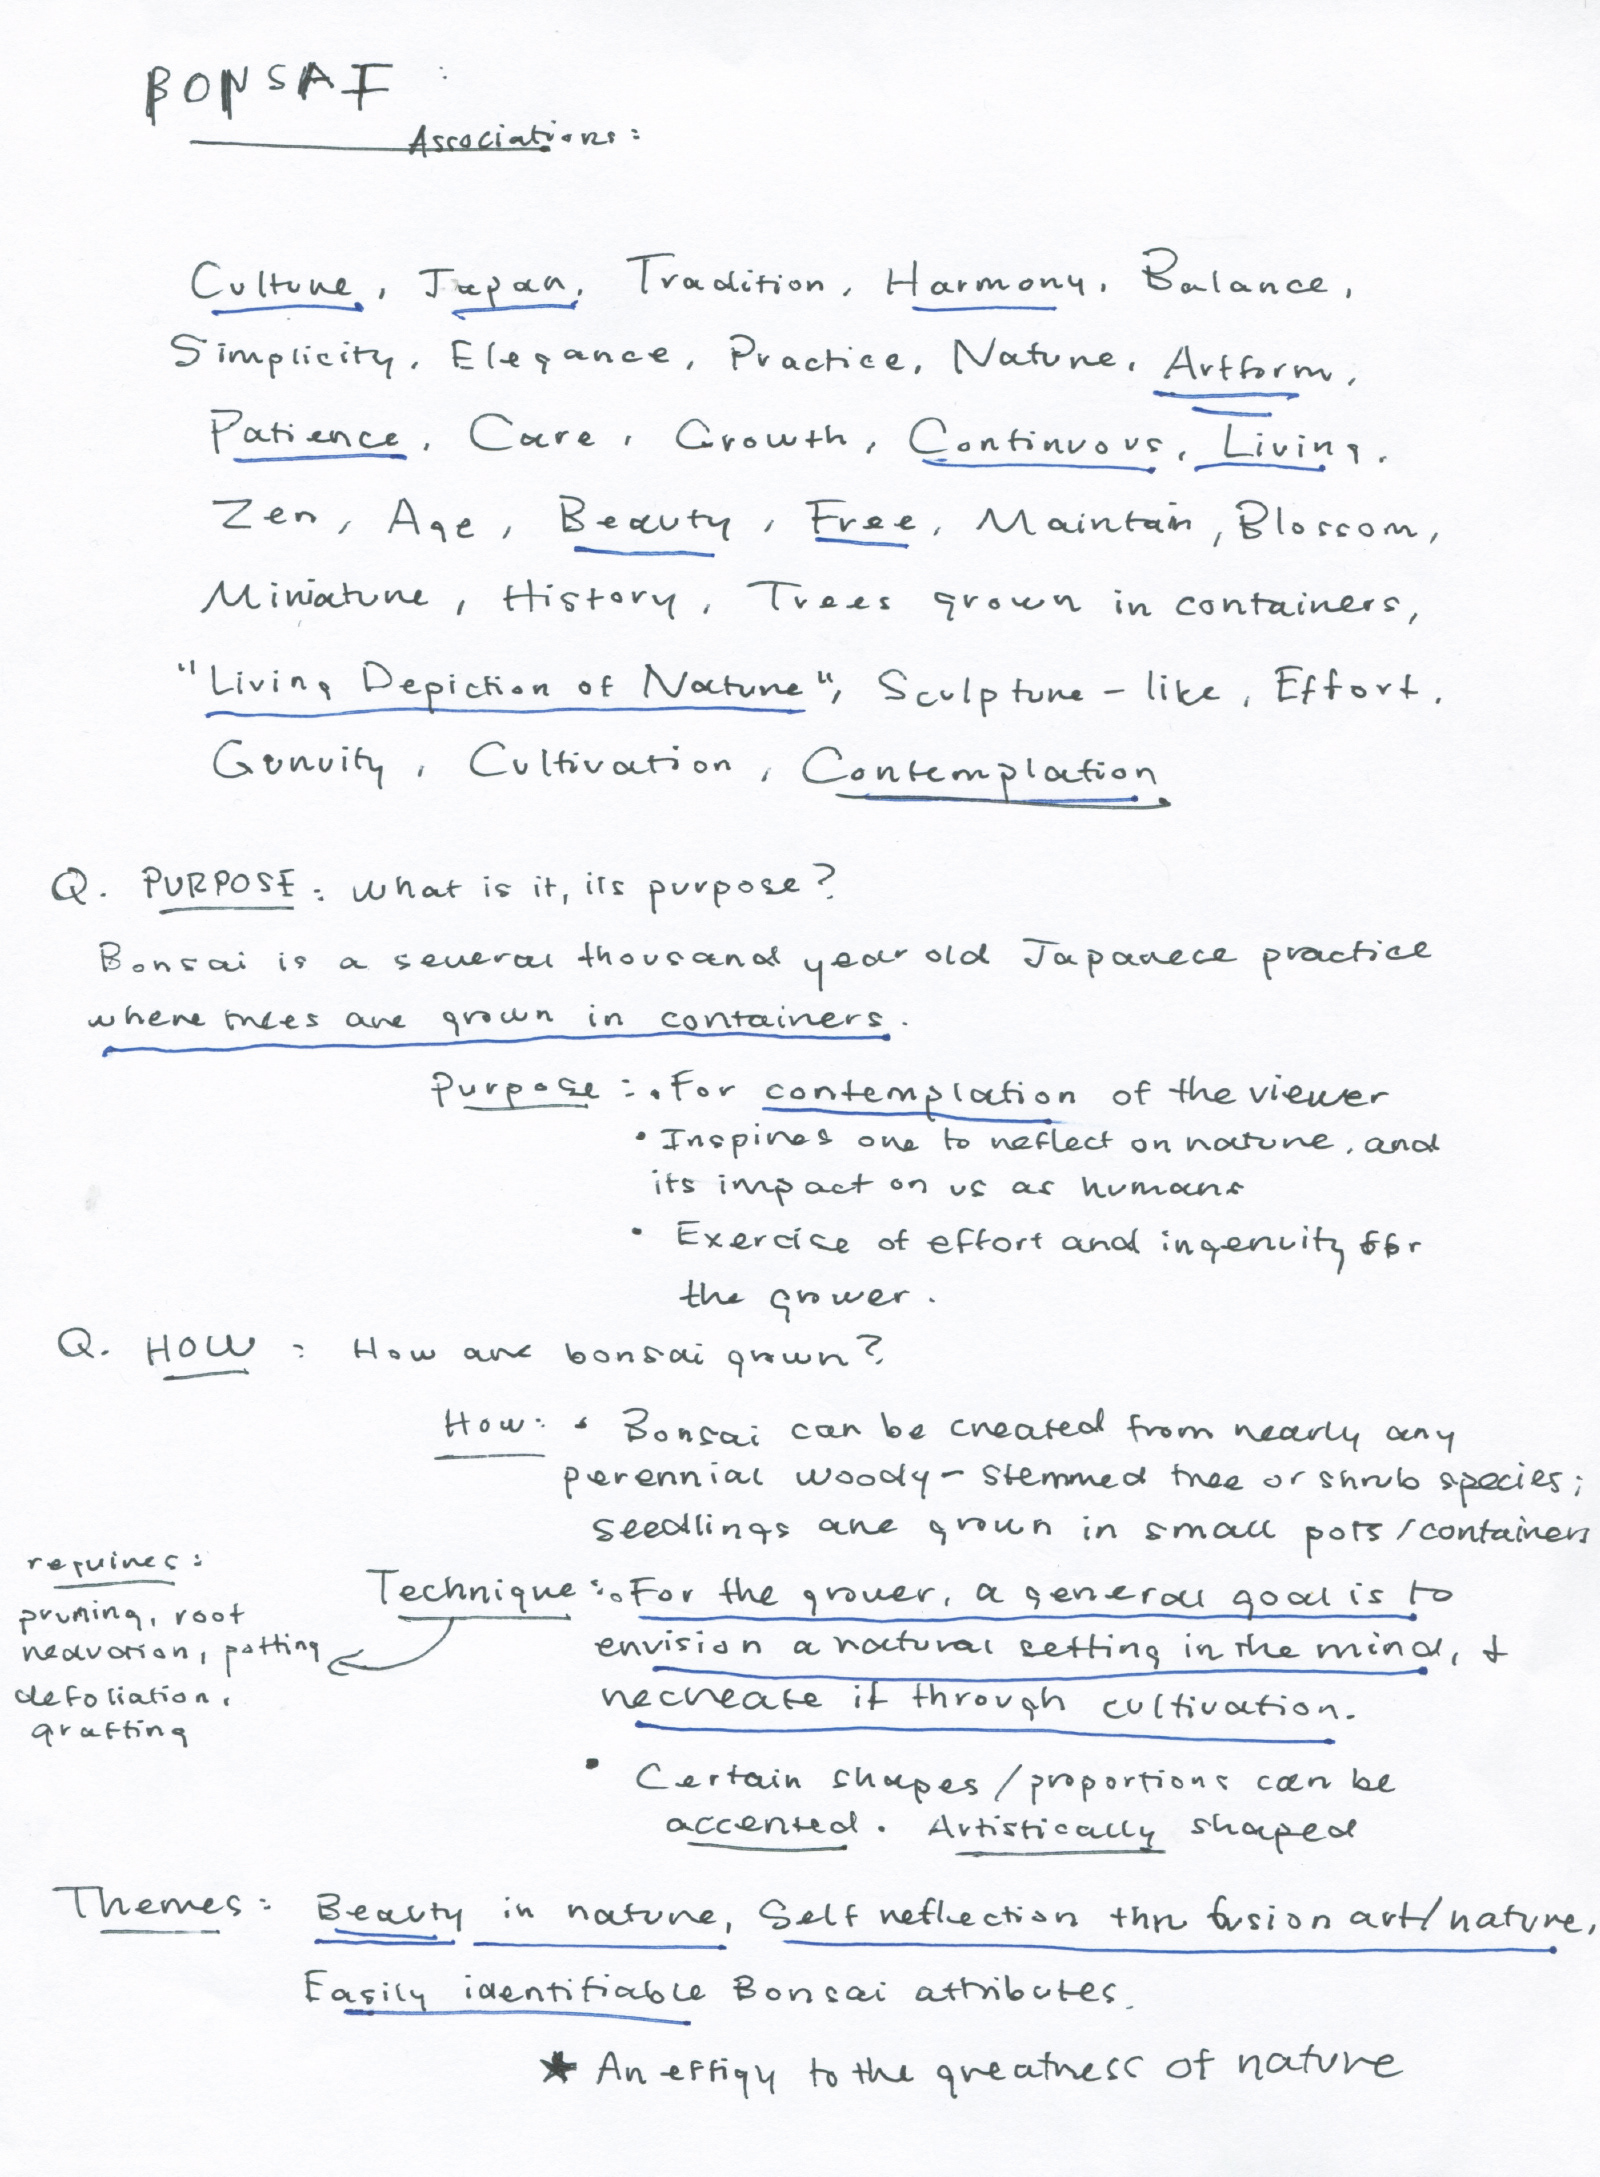 BONSAI :
Associations:
Culture, Japan, Tradition, Harmony, Balance,
Simplicity, Elegance, Practice, Nature, Artform,
Patience, Care, Growth, Continuous, Living,
Zen, Age, Beauty, Free, Maintain, Blossom,
Miniature, History, Trees grown in containers,
"Living Depiction of Nature", Sculpture-like, Effort,
Genuity, Cultivation, Contemplation
Q. PURPOSE: What is it, its purpose?
Bonsai is a several thousand year old Japanese practice
where trees are grown in containers.
Purpose: • For contemplation of the viewer
• Inspires one to reflect on nature, and
its impact on us as humans
• Exercise of effort and ingenuity for
the grower.
Q. HOW : How are bonsai grown?
How: • Bonsai can be created from nearly any
perennial woody-stemmed tree or shrub species;
seedlings are grown in small pots/containers
requires:
pruning, root
reduction, potting
defoliation,
grafting
Technique: • For the grower, a general goal is to
envision a natural setting in the mind, &
recreate it through cultivation.
• Certain shapes/proportions can be
accented. Artistically shaped
Themes: Beauty in nature, Self reflection thru fusion art/nature,
Easily identifiable Bonsai attributes.
★ An effigy to the greatness of nature